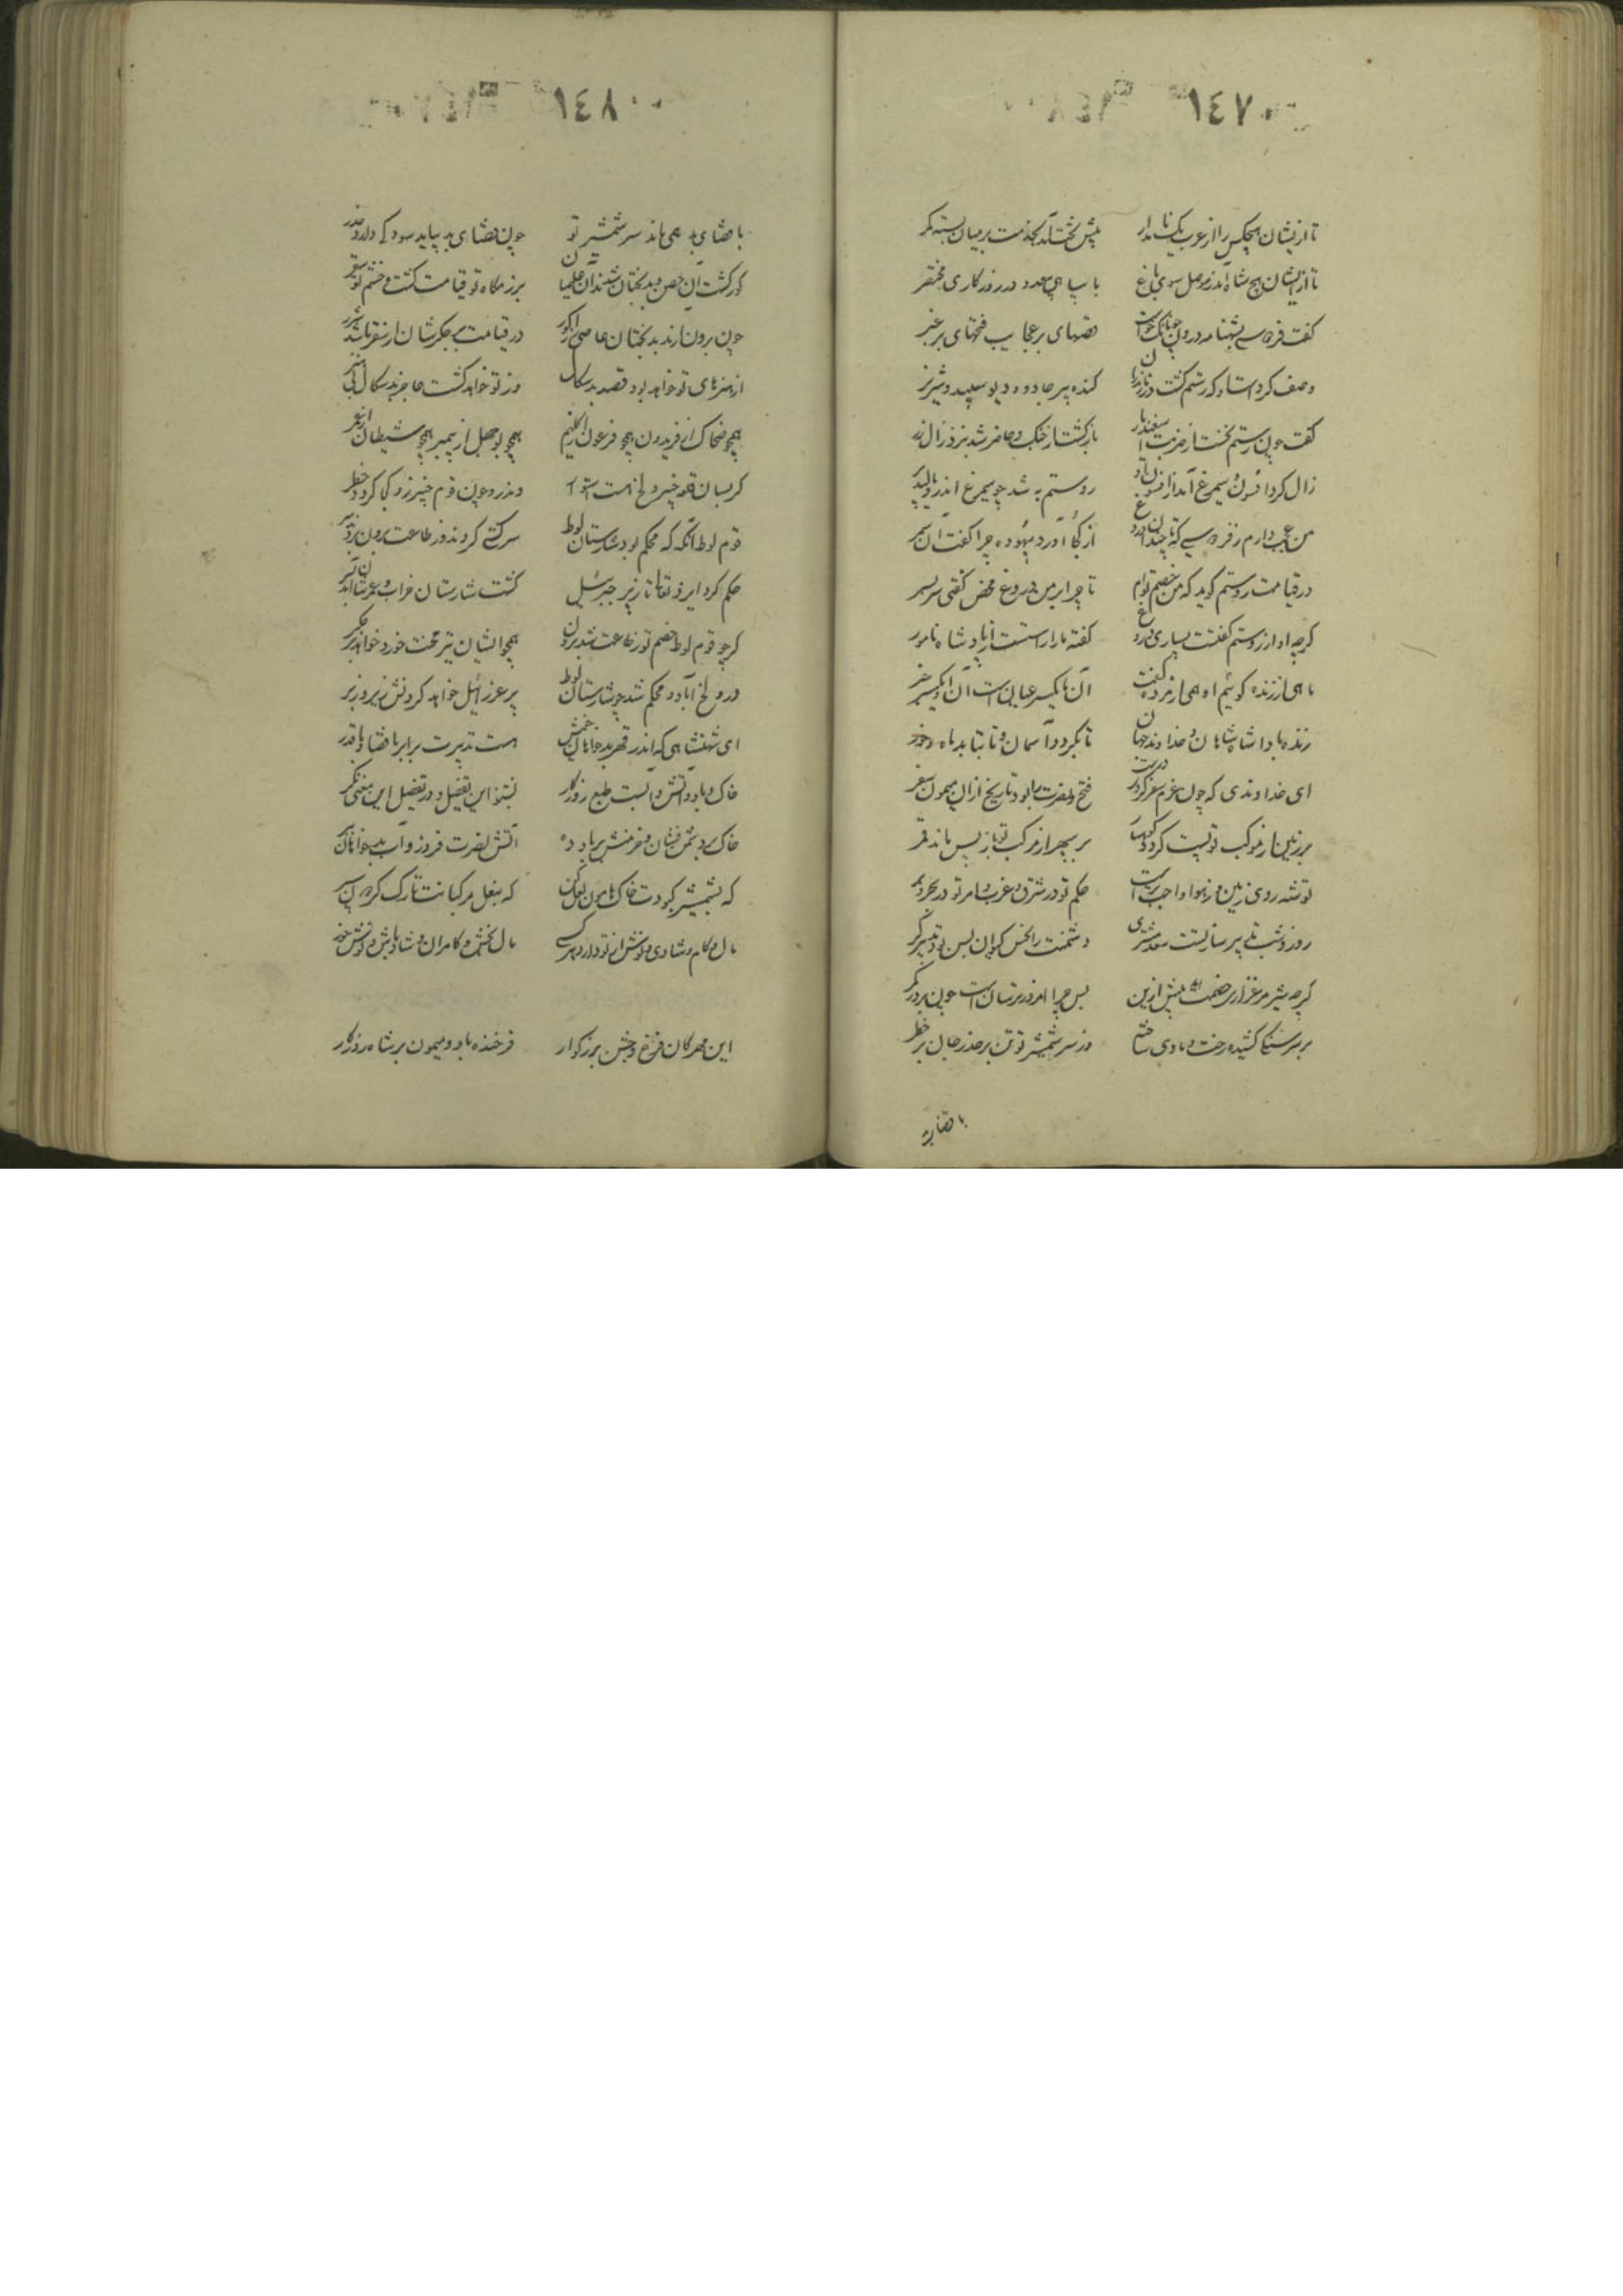 ١٤٧
تا از ایشان هیچکس را از عرب یک نامدار پیش تخت آمد بخدمت بر میان بسته کمر
تا از ایشان هیچ شاه آمد ز موصل سوی باغ با سپاهی بیعدد در روزکاری مختصر
کفت فردوسی بشهنامه درون چونانکه خواست قصهای پر عجایب فتحهای پر عبر
وصف کردست او که رستم کشت در مازندران کنده پیر جادو و دیو سپید و شیر نر
کفت چون رستم بجست از ضربت اسفندیار بازکشت از جنک و حاضر شد بنزد زال زر
زال کرد افسون و سیمرغ آمد از افسون او روستم به شد چو سیمرغ اندرو مالید پر
من عجب دارم ز فردوسی که تا چندان دروغ از کجا آورد و بیهوده چرا کفت آن سمر
در قیامت روستم کوید که من خصم توام تا چرا بر من دروغ محض کفتی سر بسر
کرچه او از روستم کفتست بسیاری دروغ کفته ما راستست از پادشاه نامور
ما همی از زنده کوئیم او همی از مرده کفت آن ما یکسر عیان است آن او یکسر خبر
زنده بادا شاه شاهان و خداوند جهان تا بکردد آسمان و تا بتابد ماه و خور
ای خداوندی که چون عزم سفر کردی درست فتح و نصرت را بود تاریخ از آن میمون سفر
بر زمین از موکب تو پست کردد کوهسار بر سپهر از مرکب تو باز پس ماند قمر
توشه روی زمین و از هوا واجب است حکم تو در شرق و غرب و امر تو در بحر و بر
روز و شب تدبیر ساز تست سعد مشتری دشمنت را نحس کیوان بس بود تدبیرکر
کرچه شیر مرغزاری خصمت پیش ازین پس چرا امروز ترسان است چون روبه دکر
بر سر سنکی کشیده رخت و ماوی ساخته وز سر شمشیر تو تن بر حذر جان بر خطر
با قضای بد
١٤٨
با قضای بد همی ماند سر شمشیر تو چون قضای بد بیاید سود کی دارد حذر
کور کشت آن حصن و بدبختان شدند آن عاصیان بزمکاه تو قیامت کشت و خشم تو سقر
چون برون آرند بدبختان عاصی را ز کور در قیامت بی جکرشان از سقر باشد شرر
از هنرهای تو خواهد بود قصد بدسکال وز تو خواهد کشت عاجز بدسکال بی هنر
همچو ضحاک از فریدون همچو فرعون از کلیم همچو بوجهل از پیمبر همچو شیطان از عمر
کر بسان قلعه خیبر ولخ هست استوار واندرو چون قوم خیبر زو کجا کردد خطر
قوم لوط آنکه که محکم بود شارستان لوط سرکشی کردند و از طاعت برون بردند سر
حکم کرد ایزد تعالی تا ز پر جبرئیل کشت شارستان خراب و عمرشان آمد بسر
کر چو قوم لوط خصم تو ز طاعت شد برون همچو ایشان تیر محنت خورد خواهد بر جکر
ور ولخ آباد و محکم شد چو شارستان لوط پر عزرائیل خواهد کردنش زیر و زبر
ای شهنشاهی که اندر قهر بدخواهان خویش هست تدبیرت برابر با قضا و با قدر
خاک و باد و آتش و آبست طبع روزکار بشنو این تفضیل و در تفضیل این معنی نکر
خاک بر دشمن فشان و خرمنش بر باد ده آتش نصرت فروز و آب بدخواهان ببر
که بشمشیر کبودت خاک هامون لعل کن که بنعل مرکبانت تارک کردون سپر
مال و کام و شادی و نوش از تو دارد هر کسی مال بخش و کامران و شاد باش و نوش خور
این مهرکان فرخ و جشن بزرکوار فرخنده باد و میمون بر شاه روزکار